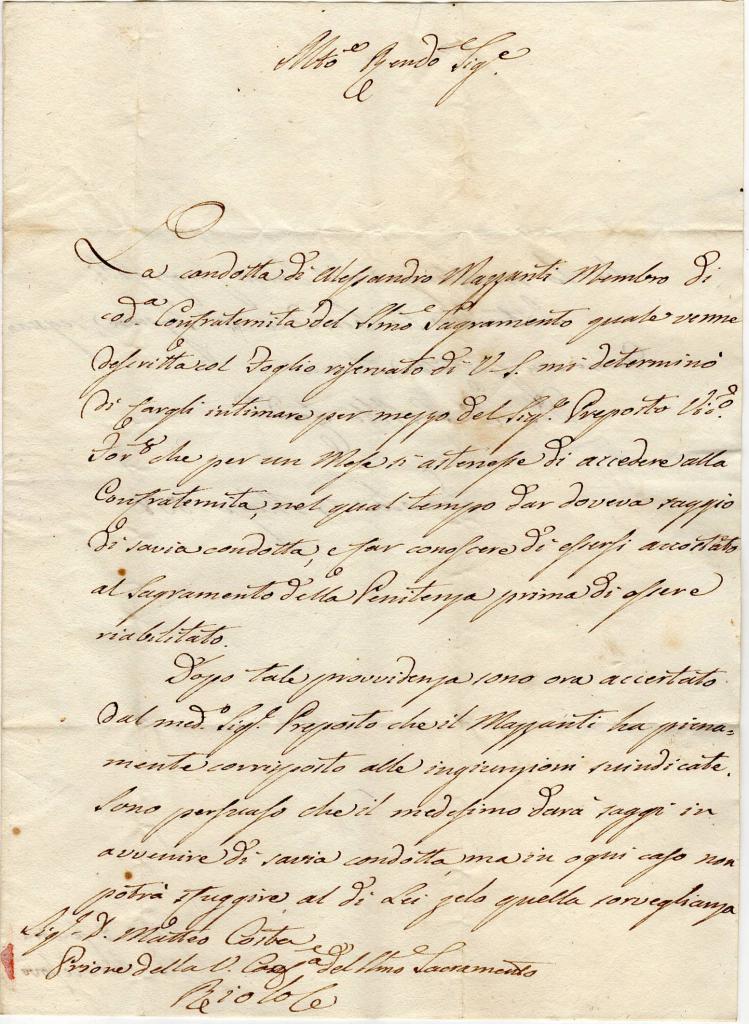 Mto. Rendo Sige.
La condotta di Alessandro Mazzanti Membro di
coda. Confraternita del SSmo Sagramento quale venne
descritta col Foglio riservato di V.S. mi determinò
di fargli intimare per mezzo del Sigr. Preposto Vico.
Fore. che per un Mese si astenesse di accedere alla
Confraternita, nel qual tempo dar doveva saggio
di savia condotta, e far conoscere di essersi accostato
al Sagramento della Penitenza prima di essere
riabilitato.
Dopo tale provvidenza sono ora accertato
dal medo. Sigr. Preposto che il Mazzanti ha piena-
mente corrisposto alle ingiunzioni suindicate.
Sono persuaso che il medesimo darà saggi in
avvenire di savia condotta, ma in ogni caso non
potrà sfuggire al di Lei zelo quella sorveglianza
Sigr. D. Matteo Costa
Priore della V. Confa. del SSmo Sacramento
Riolo